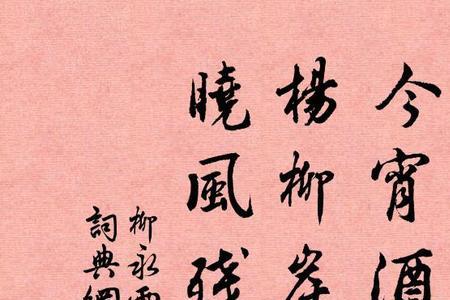 今宵酒
楊柳岸
曉風殘
柳永雨
詞典網